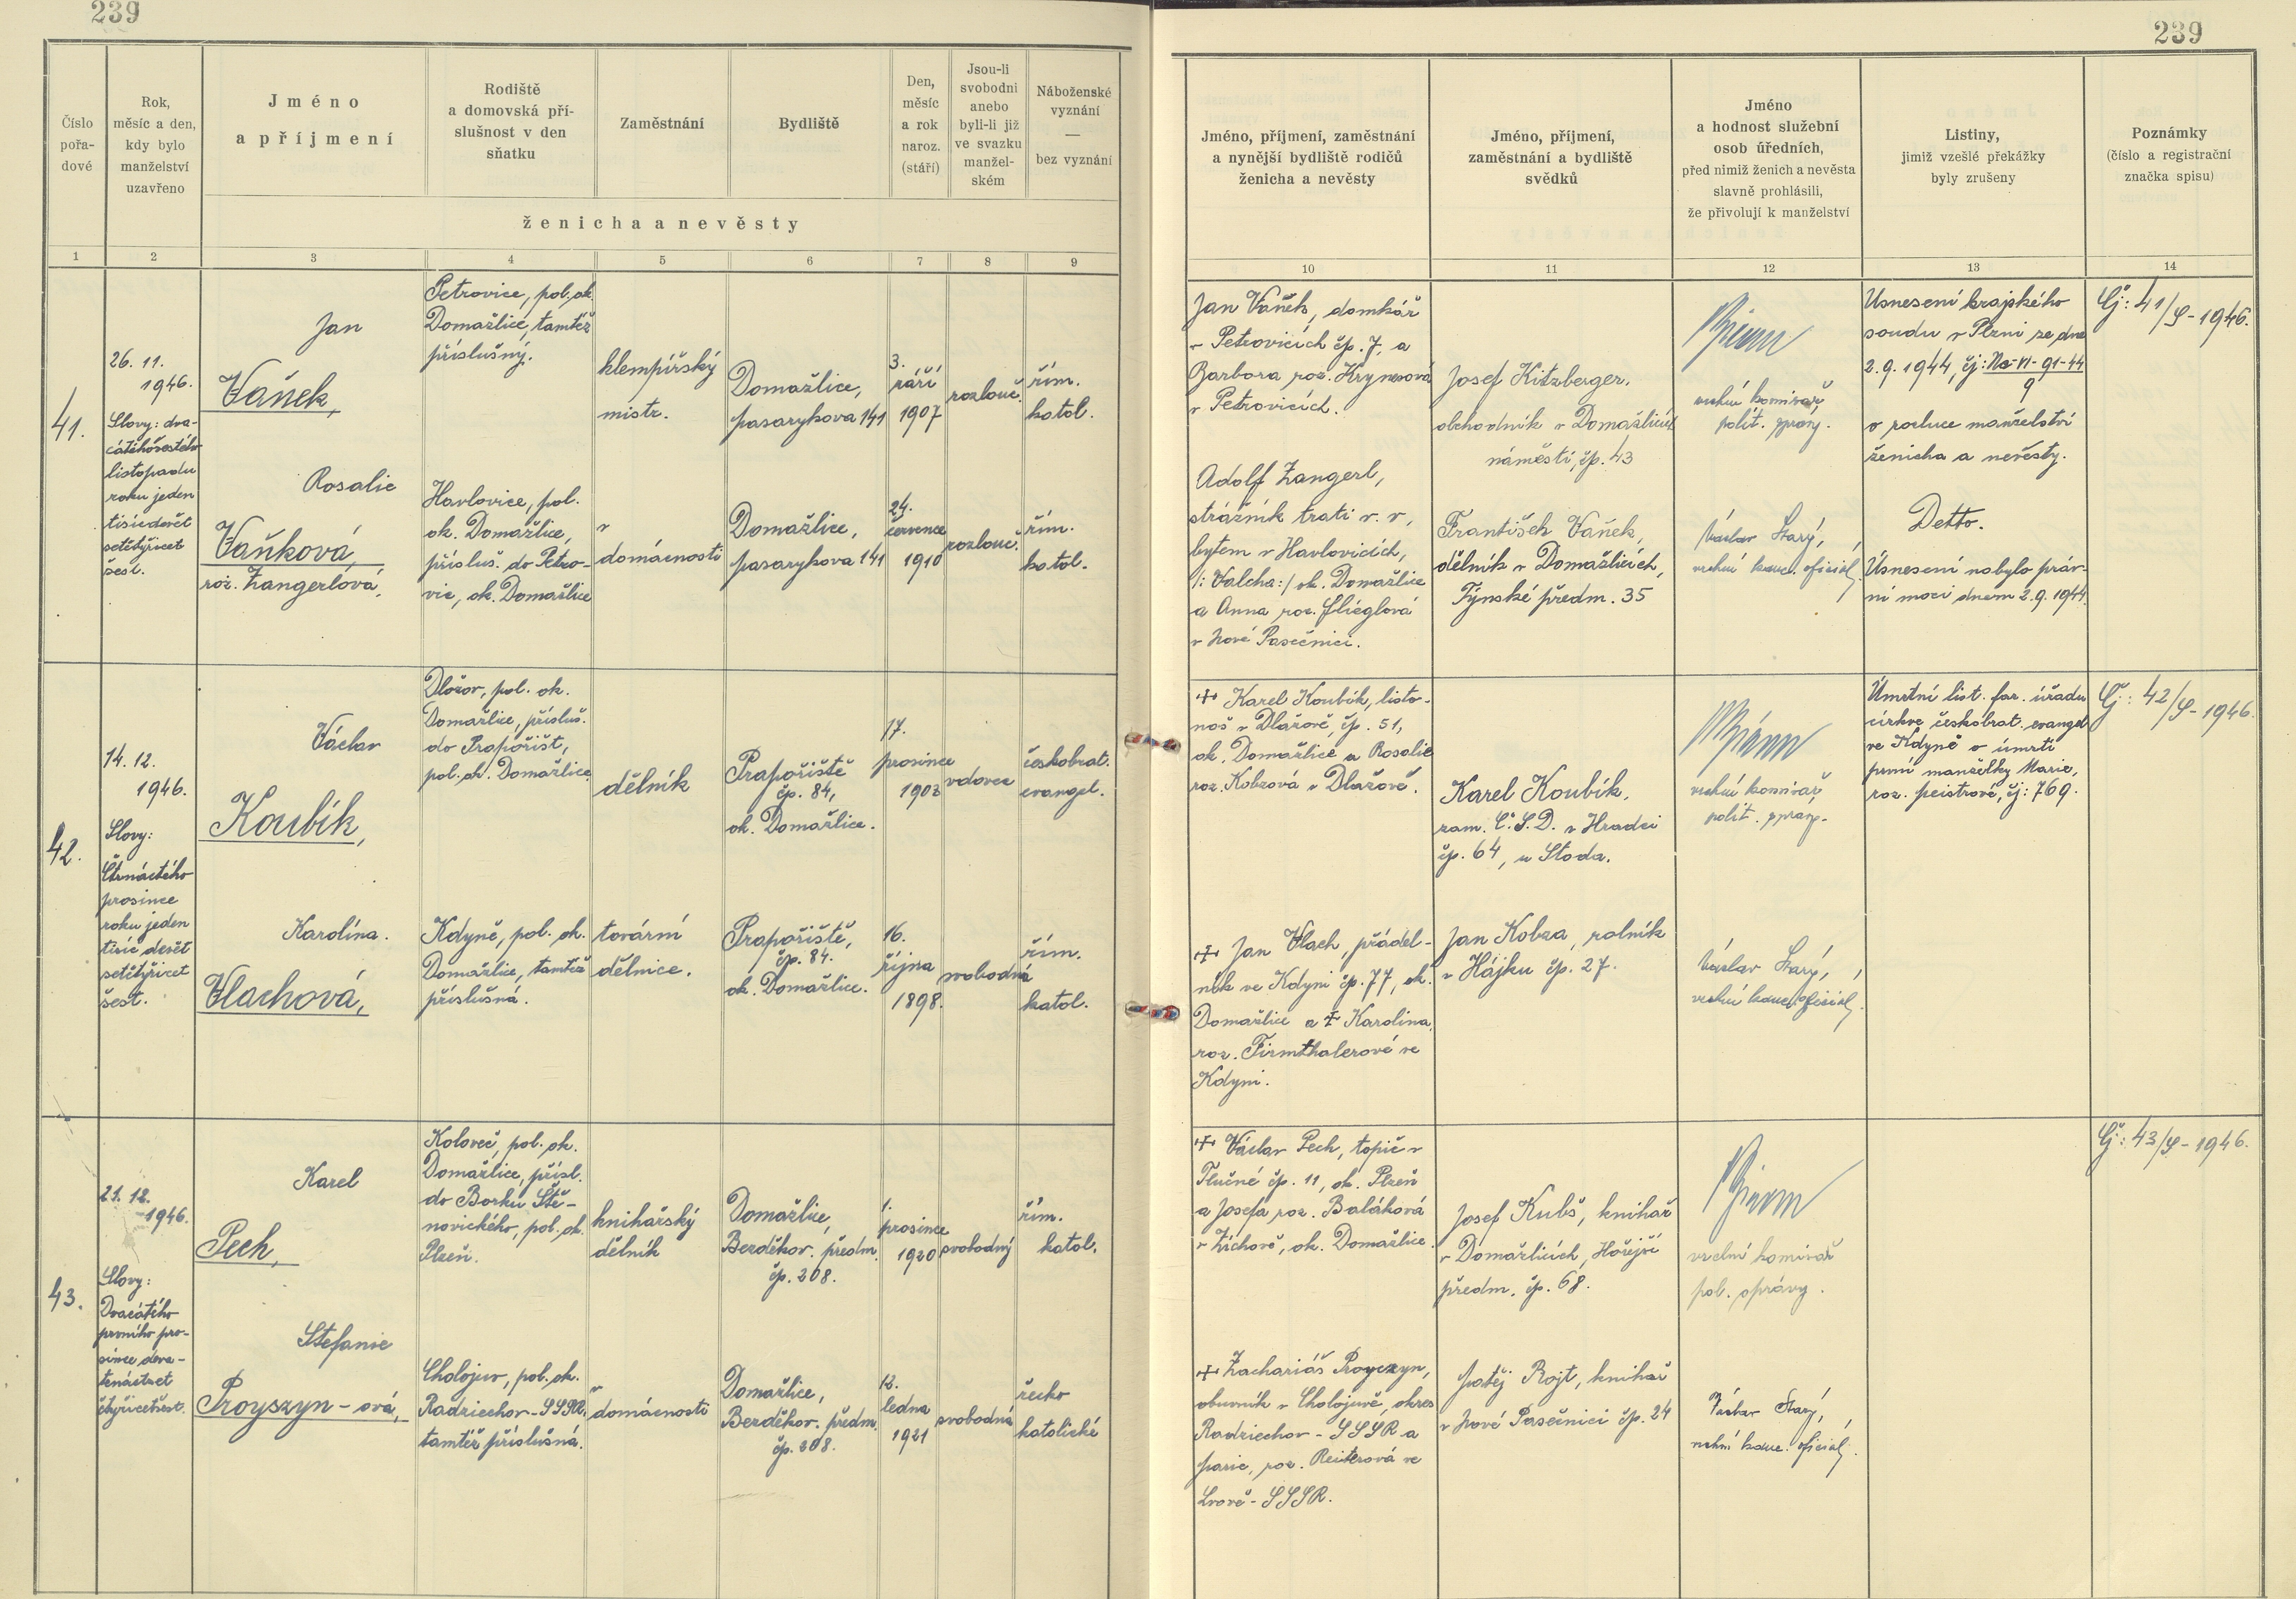 239
239
Číslo
pořa-
dové
Rok,
měsíc a den,
kdy bylo
manželství
uzavřeno
Jméno
a příjmení
Rodiště
a domovská pří-
slušnost v den
sňatku
Zaměstnání
Bydliště
Den,
měsíc
a rok
naroz.
(stáří)
Jsou-li
svobodni
anebo
byli-li již
ve svazku
manžel-
ském
Náboženské
vyznání
—
bez vyznání
ženicha a nevěsty
Jméno, příjmení, zaměstnání
a nynější bydliště rodičů
ženicha a nevěsty
Jméno, příjmení,
zaměstnání a bydliště
svědků
Jméno
a hodnost služební
osob úředních,
před nimiž ženich a nevěsta
slavně prohlásili,
že přivolují k manželství
Listiny,
jimiž vzešlé překážky
byly zrušeny
Poznámky
(číslo a registrační
značka spisu)
1 2 3 4 5 6 7 8 9 10 11 12 13 14
41.
26. 11.
1946.
Slovy: dva-
cátéhošestého
listopadu
roku jeden
tisícdevět
setčtyřicet
šest.
Jan
Vaněk,
Petrovice, pol. ok.
Domažlice, tamtéž
příslušný.
klempířský
mistr.
Domažlice,
Masarykova 141
3.
září
1907
rozlouč.
řím.
katol.
Rosalie
Vaňková,
roz. Zangerlová,
Havlovice, pol.
ok. Domažlice,
přísluš. do Petro-
vic, ok. Domažlice
v
domácnosti
Domažlice,
Masarykova 141
24.
července
1910
rozlouč.
řím.
katol.
Jan Vaněk, domkář
v Petrovicích čp. 7, a
Barbora roz.
v Petrovicích.
Adolf Zangerl,
strážník trati v. v,
bytem v Havlovicích,
/: Valcha:/ ok. Domažlice
a Anna roz. Flieglová
v Nové Pasečnici.
Josef Kitzberger,
obchodník v Domažlicích
náměstí, čp. 43
František Vaněk,
dělník v Domažlicích,
Týnské předm. 35
vrchní komisař
polit. správy.
Václav Starý,
vrchní kanc. oficiál.
Usnesení krajského
soudu v Plzni ze dne
2.9. 1944, čj: Nc-VI-91-44
9
o rozluce manželství
ženicha a nevěsty.
Detto.
Usnesení nabylo práv-
ní moci dnem 2.9. 1944.
Čj: 41/S-1946.
42.
14. 12.
1946.
Slovy:
Čtrnáctého
prosince
roku jeden
tisíc devět
setčtyřicet
šest.
Václav
Koubík,
pol. ok.
Domažlice, přísluš.
do Prapořišť,
pol. ok. Domažlice.
dělník
Prapořiště
čp. 84,
ok. Domažlice.
17.
prosince
1903
vdovec
českobrat.
evangel.
Karolína.
Vlachová,
Kdyně, pol. ok.
Domažlice, tamtéž
příslušná.
tovární
dělnice.
Prapořiště,
čp. 84.
ok. Domažlice.
16.
října
1898.
svobodná
řím.
katol.
+ Karel Koubík, listo-
noš v Dlažově, čp. 51,
ok. Domažlice a Rosalie
roz. Kobzová v Dlažově.
+ Jan Vlach, přádel-
ník ve Kdyni čp. 77, ok.
Domažlice a + Karolina,
roz. Firmthalerové ve
Kdyni.
Karel Koubík,
zam. Č.S.D. v Hradci
čp. 64, u Stoda.
Jan Kobza, rolník
v Hájku čp. 27.
vrchní komisař
polit. správy.
Václav Starý,
vrchní kanc. oficiál.
Úmrtní list far. úřadu
církve českobrat. evangel
ve Kdyně o úmrtí
první manželky Marie,
roz. Meistrové, čj: 769.
Čj: 42/S-1946.
43.
21. 12.
1946.
Slovy:
Dvacátého
prvního pro-
since deva-
tenáctset
čtyřicetšest.
Karel
Pech,
Koloveč, pol. ok.
Domažlice, přísl.
do Borku Ště-
novického, pol. ok.
Plzeň.
knihařský
dělník
Domažlice,
Bezděkov. předm.
čp. 208.
1.
prosince
1920
svobodný
řím.
katol.
Stefanie
Proyszyn-ová,
Cholojuv, pol. ok.
Radziechov-SSSR,
tamtéž příslušná.
v
domácnosti
Domažlice,
Bezděkov. předm.
čp. 208.
12.
ledna
1921
svobodná
řecko
katolické
+ Václav Pech, topič v
Tlučné čp. 11, ok. Plzeň
a Josefa roz. Baláková
v Zíchově, ok. Domažlice.
+ Zachariáš Proyczyn,
obuvník v Cholojuvě, okres
Radziechov-SSSR a
Marie, roz. Reiterová ve
Lvově-SSSR.
Josef Kubš, knihař
v Domažlicích, Hořejší
předm. čp. 68.
Matěj Rojt, knihař
v Nové Pasečnici čp. 24
vrchní komisař
pol. správy.
Václav Starý,
vrchní kanc. oficiál.
Čj: 43/S-1946.